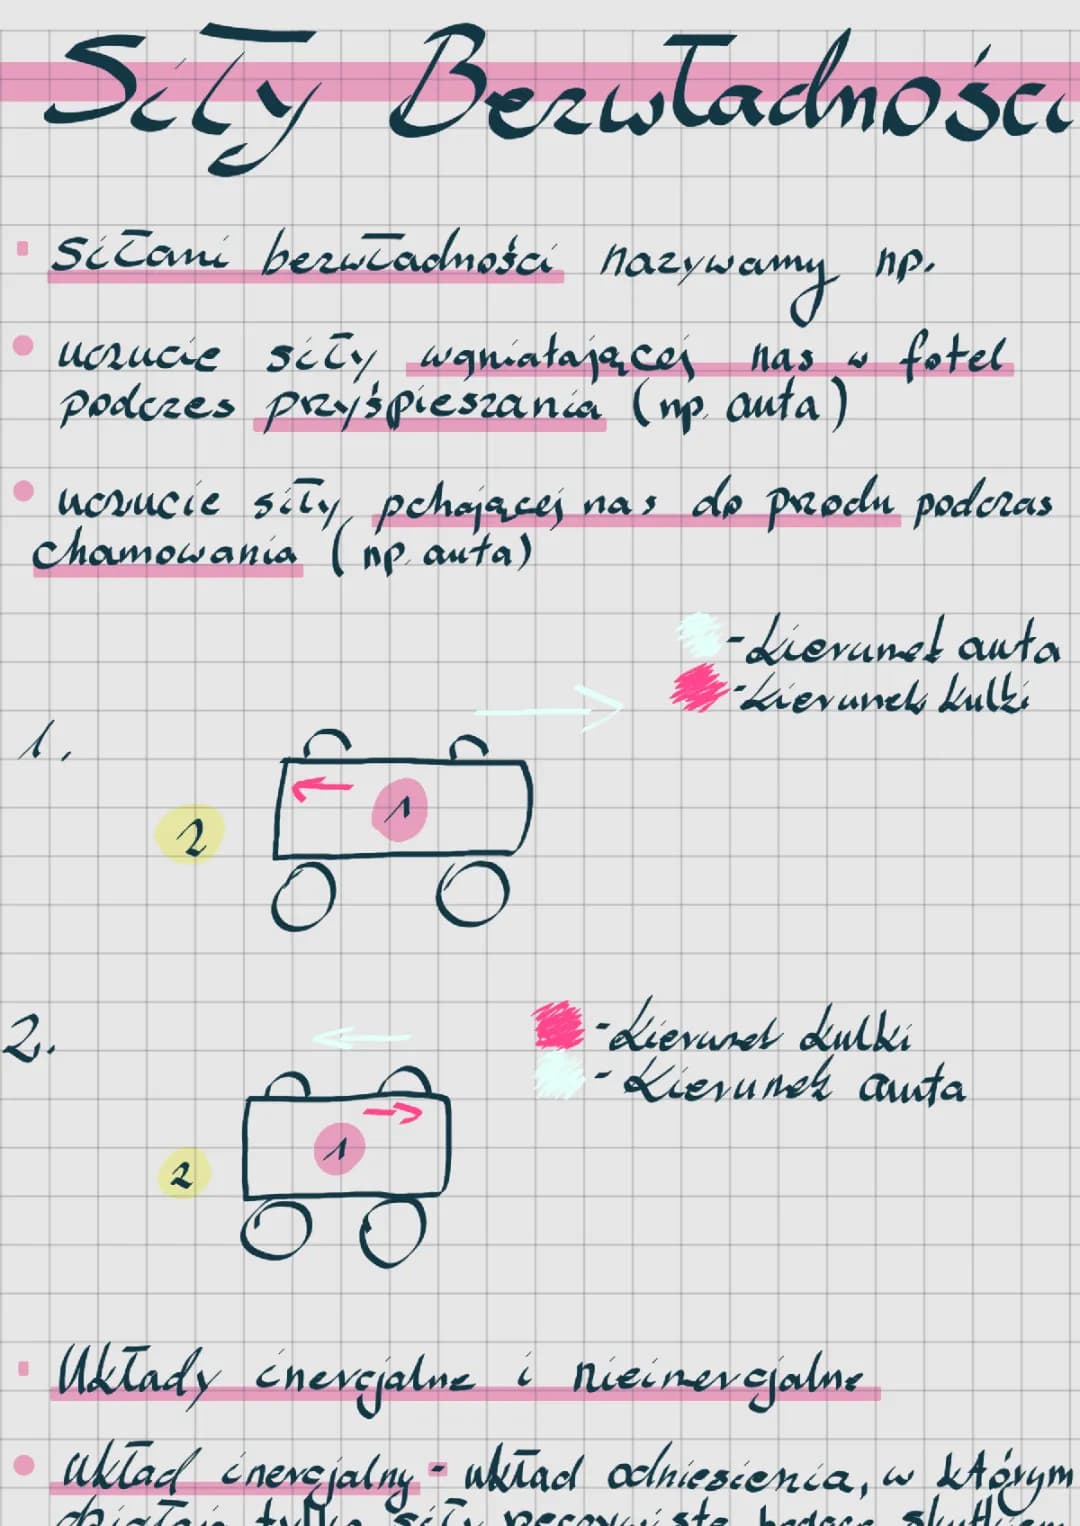 Siły Bezwładności
Siłami bezwładności nazywamy np.
uczucie siły wgniatającej nas w fotel
podczes przyśpieszania (np. auta)
uczucie siły pchającej nas do przodu podczas
chamowania (np. auta)
-kierunek auta
-kierunek kulki
1.
1
2
2.
-kierunek kulki
- kierunek auta
1
2
Układy inercjalne i nieinercjalne
Układ inercjalny - układ odniesienia, w którym
działają tylko siły rzeczywiste będące skutkiem